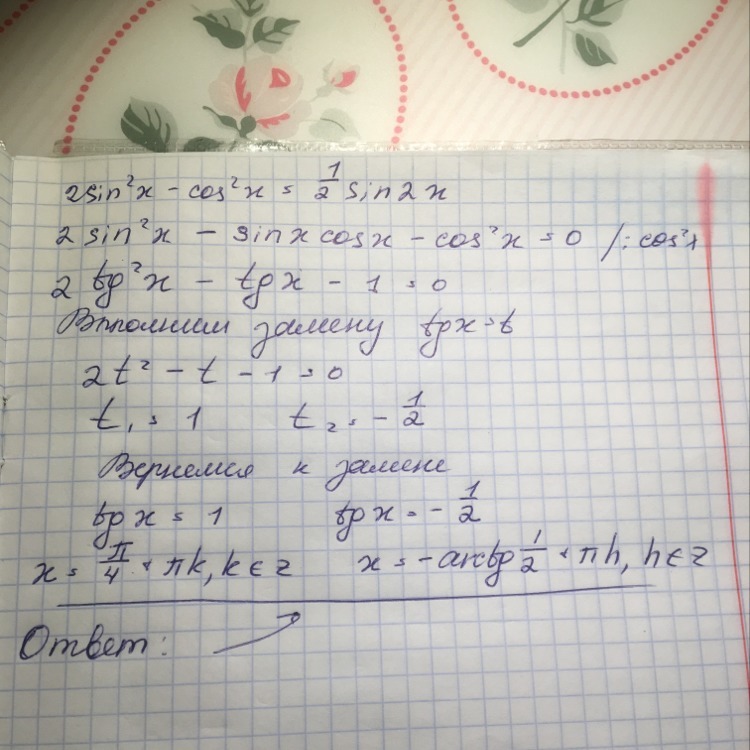 2sin²x - cos²x = 1/2 sin2x
2 sin²x - sinx cosx - cos²x = 0 /: cos²x
2 tg²x - tgx - 1 = 0
Выполним замену tgx = t
2t² - t - 1 = 0
t₁ = 1 t₂ = - 1/2
Вернемся к замене
tgx = 1 tgx = - 1/2
x = π/4 + πk, k ∈ z x = -arctg 1/2 + πn, n ∈ z
Ответ: